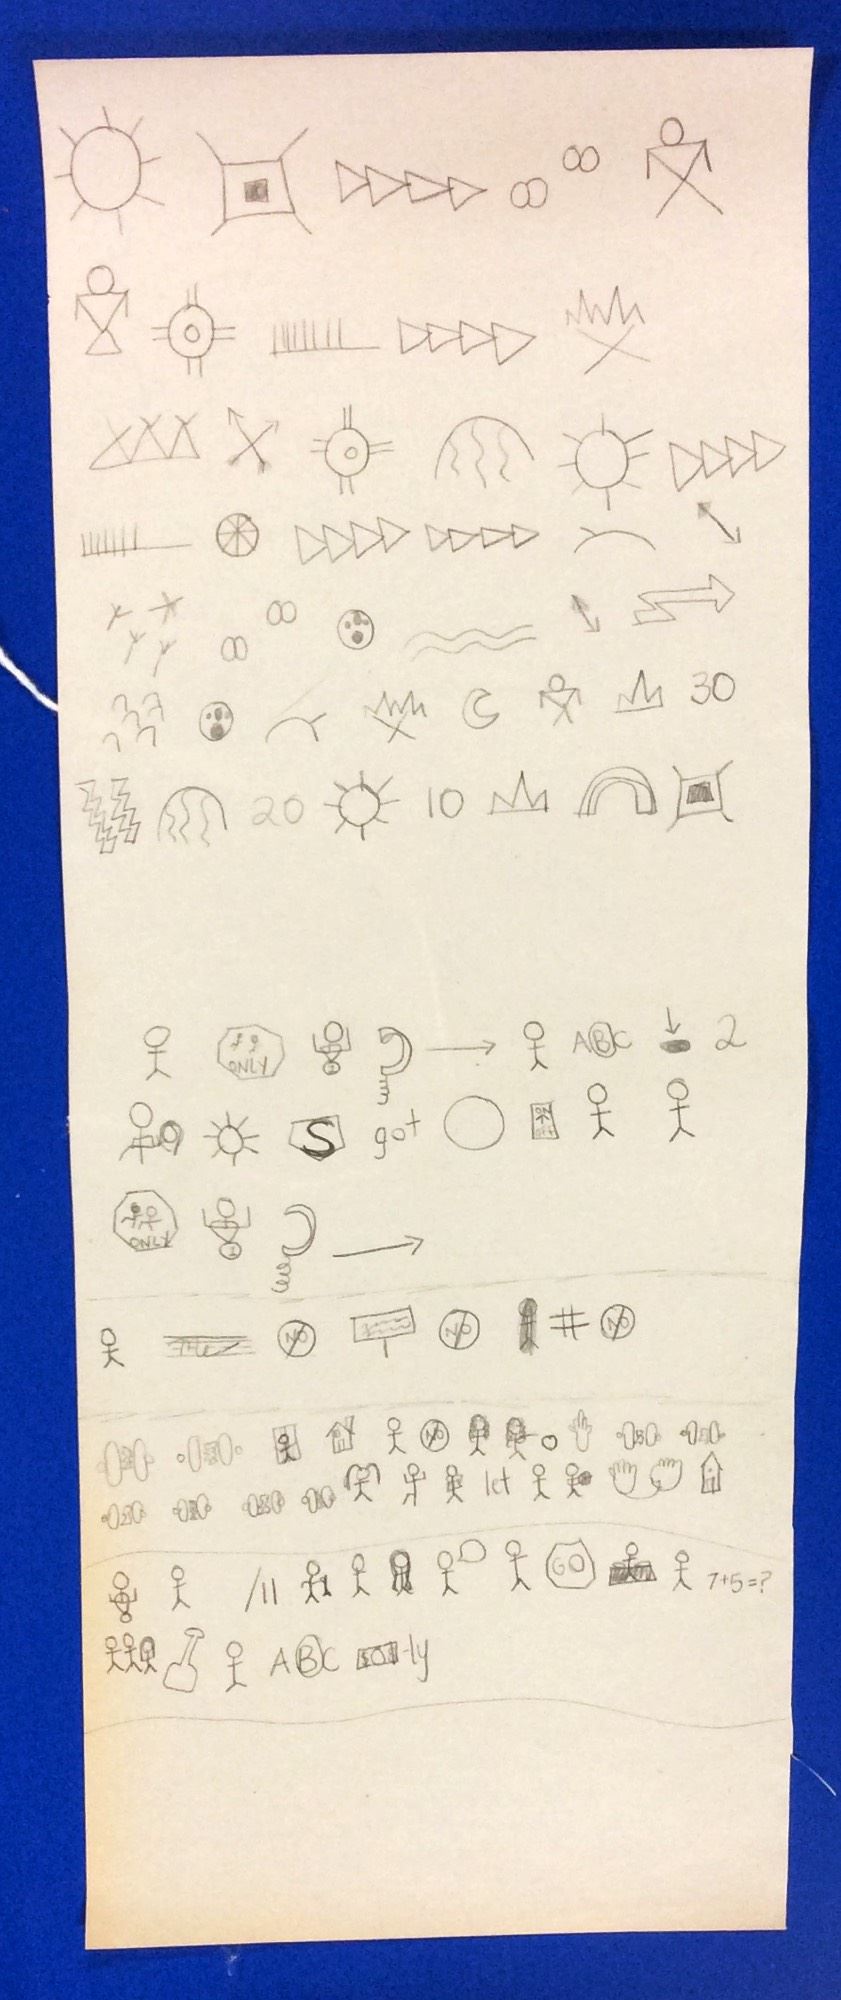 30
20 10
ONLY ABC 2
S got ON OFF
ONLY
NO NO # NO
NO
let
GO 7+5=?
ABC -ly